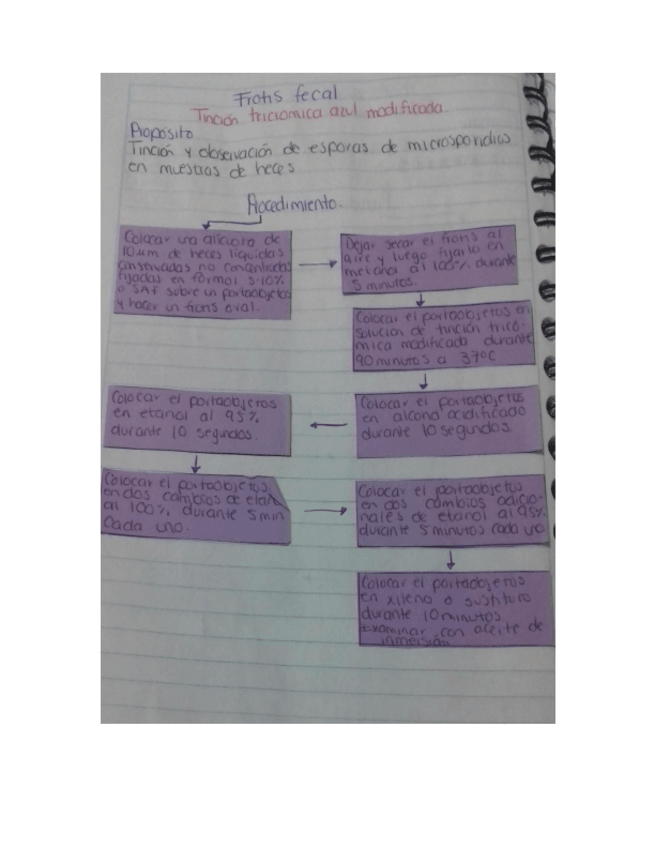 Frotis fecal
Tinción tricromica azul modificada.
Proposito
Tinción y observación de esporas de microsporidios
en muestras de heces
Procedimiento.
Colocar una alicuota de
10µm de heces liquidas
conservadas no concentradas
fijadas en formol 5-10%
o SAF sobre un portaobjetos
y hacer un frotis oval.
Dejar secar el frotis al
aire y luego fijarlo en
metanol al 100% durante
5 minutos.
Colocar el portaobjetos en
solución de tinción tricró-
mica modificada durante
90 minutos a 37°C
Colocar el portaobjetos
en alcohol acidificado
durante 10 segundos.
Colocar el portaobjetos
en etanol al 95%
durante 10 segundos.
Colocar el portaobjetos
en dos cambios de
al 100% durante 5 min
Cada uno.
Colocar el portaobjetos
en dos cambios adicio-
nales de etanol al 95%
durante 5 minutos cada uno
Colocar el portaobjetos
en xileno o sustituto
durante 10 minutos.
Examinar con aceite de
inmersión